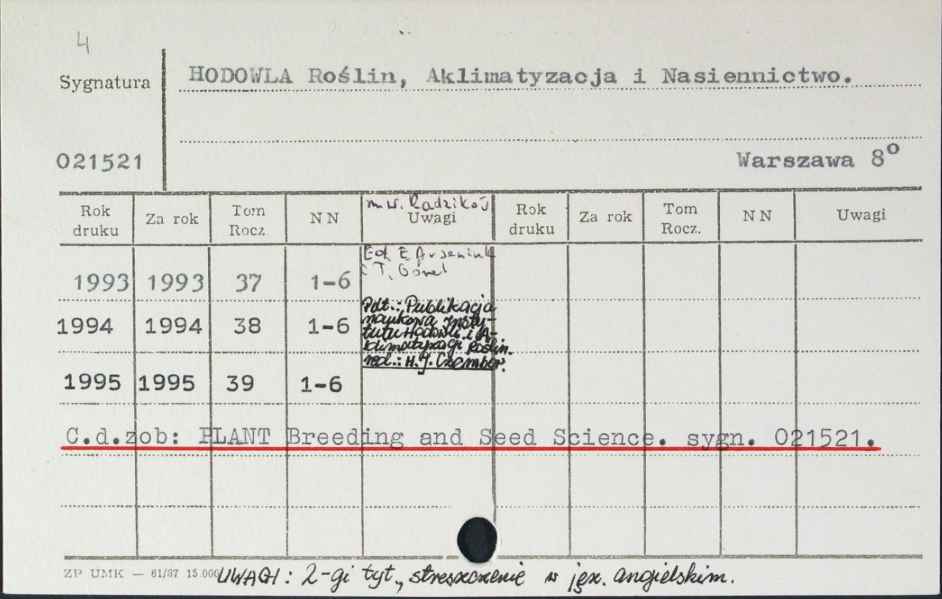 4
Sygnatura
HODOWLA Roślin, Aklimatyzacja i Nasiennictwo.
021521
Warszawa 8°
Rok druku Za rok Tom Rocz. NN m.w. Radzików Uwagi Rok druku Za rok Tom Rocz. NN Uwagi
Ed. E. Arseniuk
i T. Góral
1993 1993 37 1-6
Pdt.: Publikacja
naukowa Insty-
tutu Hodowli i A-
klimatyzacji Roślin.
red.: H.J. Czembor.
1994 1994 38 1-6
1995 1995 39 1-6
C.d.zob: PLANT Breeding and Seed Science. sygn. 021521.
ZP UMK — 61/87 15.000
UWAGI: 2-gi tyt., streszczenie w jęz. angielskim.